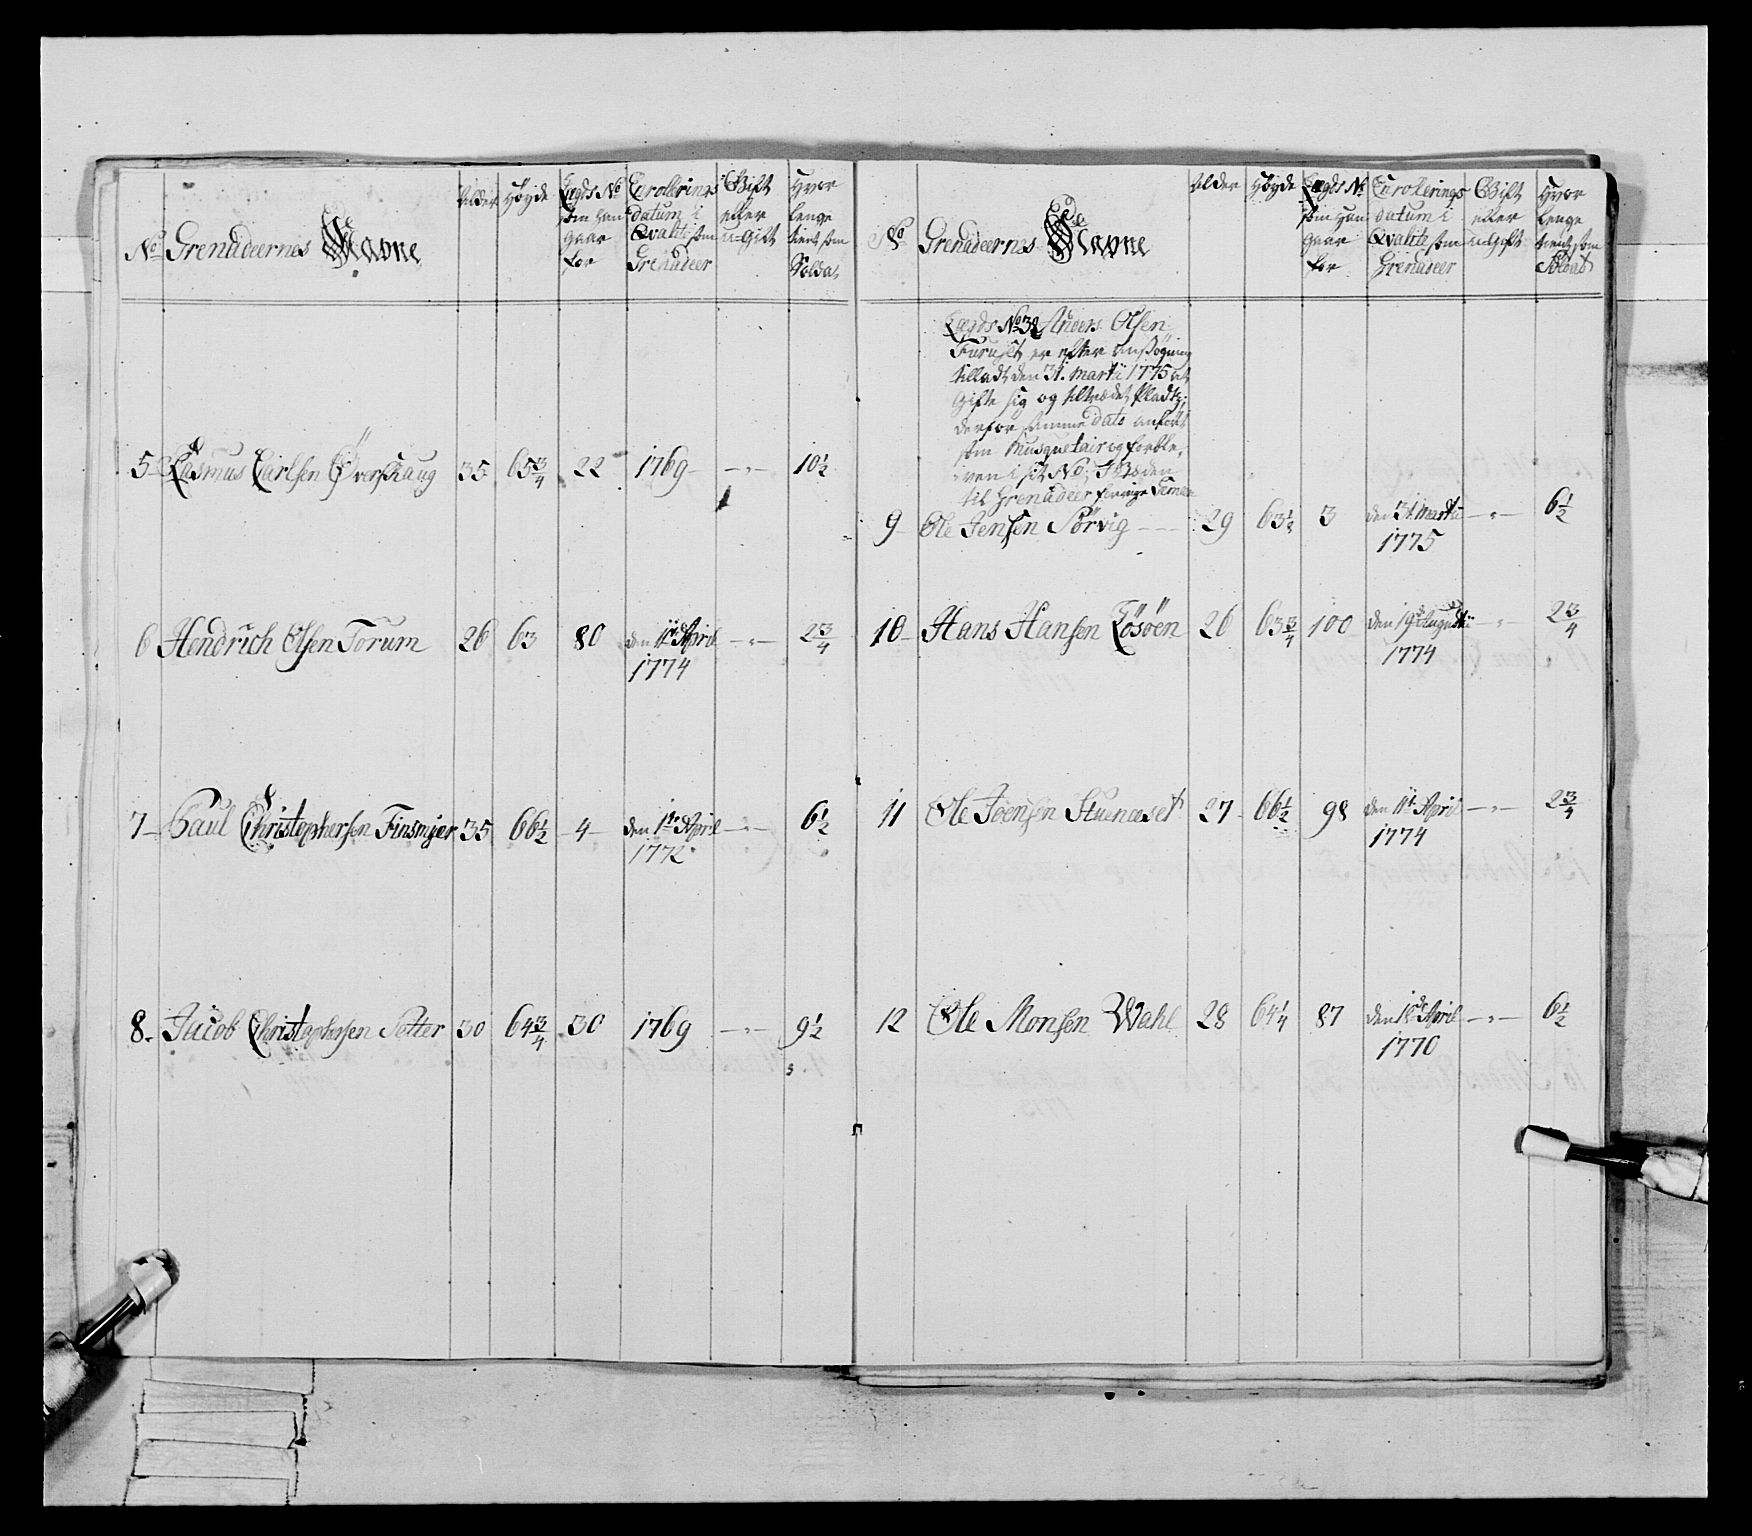 No Grenadeernes Navne
Alder
Höyde
Lægds No
som han
gaar
for
Enrolerings
datum i
Qvalite som
Grenadeer
Gift
eller
u-Gift
Hvor
lenge
tient som
Soldat
5 Rasmus Carlsen Öfverskaug 35 65 3/4 22 1769 - " - 10 1/2
6 Hendrich Olsen Torum 26 63 80 den 1ste April - " - 2 3/4
1774
7 - Paul Christophersen Finsmyer 35 66 1/2 - 4 - den 1ste April - " - 6 1/2
1772
8 - Jacob Christophersen Setter 30 64 3/4 30 1769 - " - 9 1/2
No Grenadeernes Navne
Alder
Höyde
Lægds No
som han
gaar
for
Enrolerings
datum i
Qvalite som
Grenadeer
Gift
eller
u-Gift
Hvor
lenge
tient som
Soldat
Lægds No 32 Anders Olsen
Furuset er efter ansögning
tilladt den 31. Martii 1775 at
gifte sig og tiltrædet Pladtz;
derfor samme dato anfört
som Musquetair og forble,,
ven i sit No;
til Grenadeer
9 - Ole Jensen Sörvig - - 29 63 1/2 3 den 31 Martii - " - 6 1/2
1775
10 - Hans Hansen Lösöen 26 63 3/4 100 den 19de Augustii - " - 2 3/4
1774
11 Ole Joensen Stuenæset 27 66 1/2 98 den 1ste April - " - 2 3/4
1774
12 Ole Monsen Wahl 28 64 1/4 87 den 1ste April - " - 6 1/2
1770